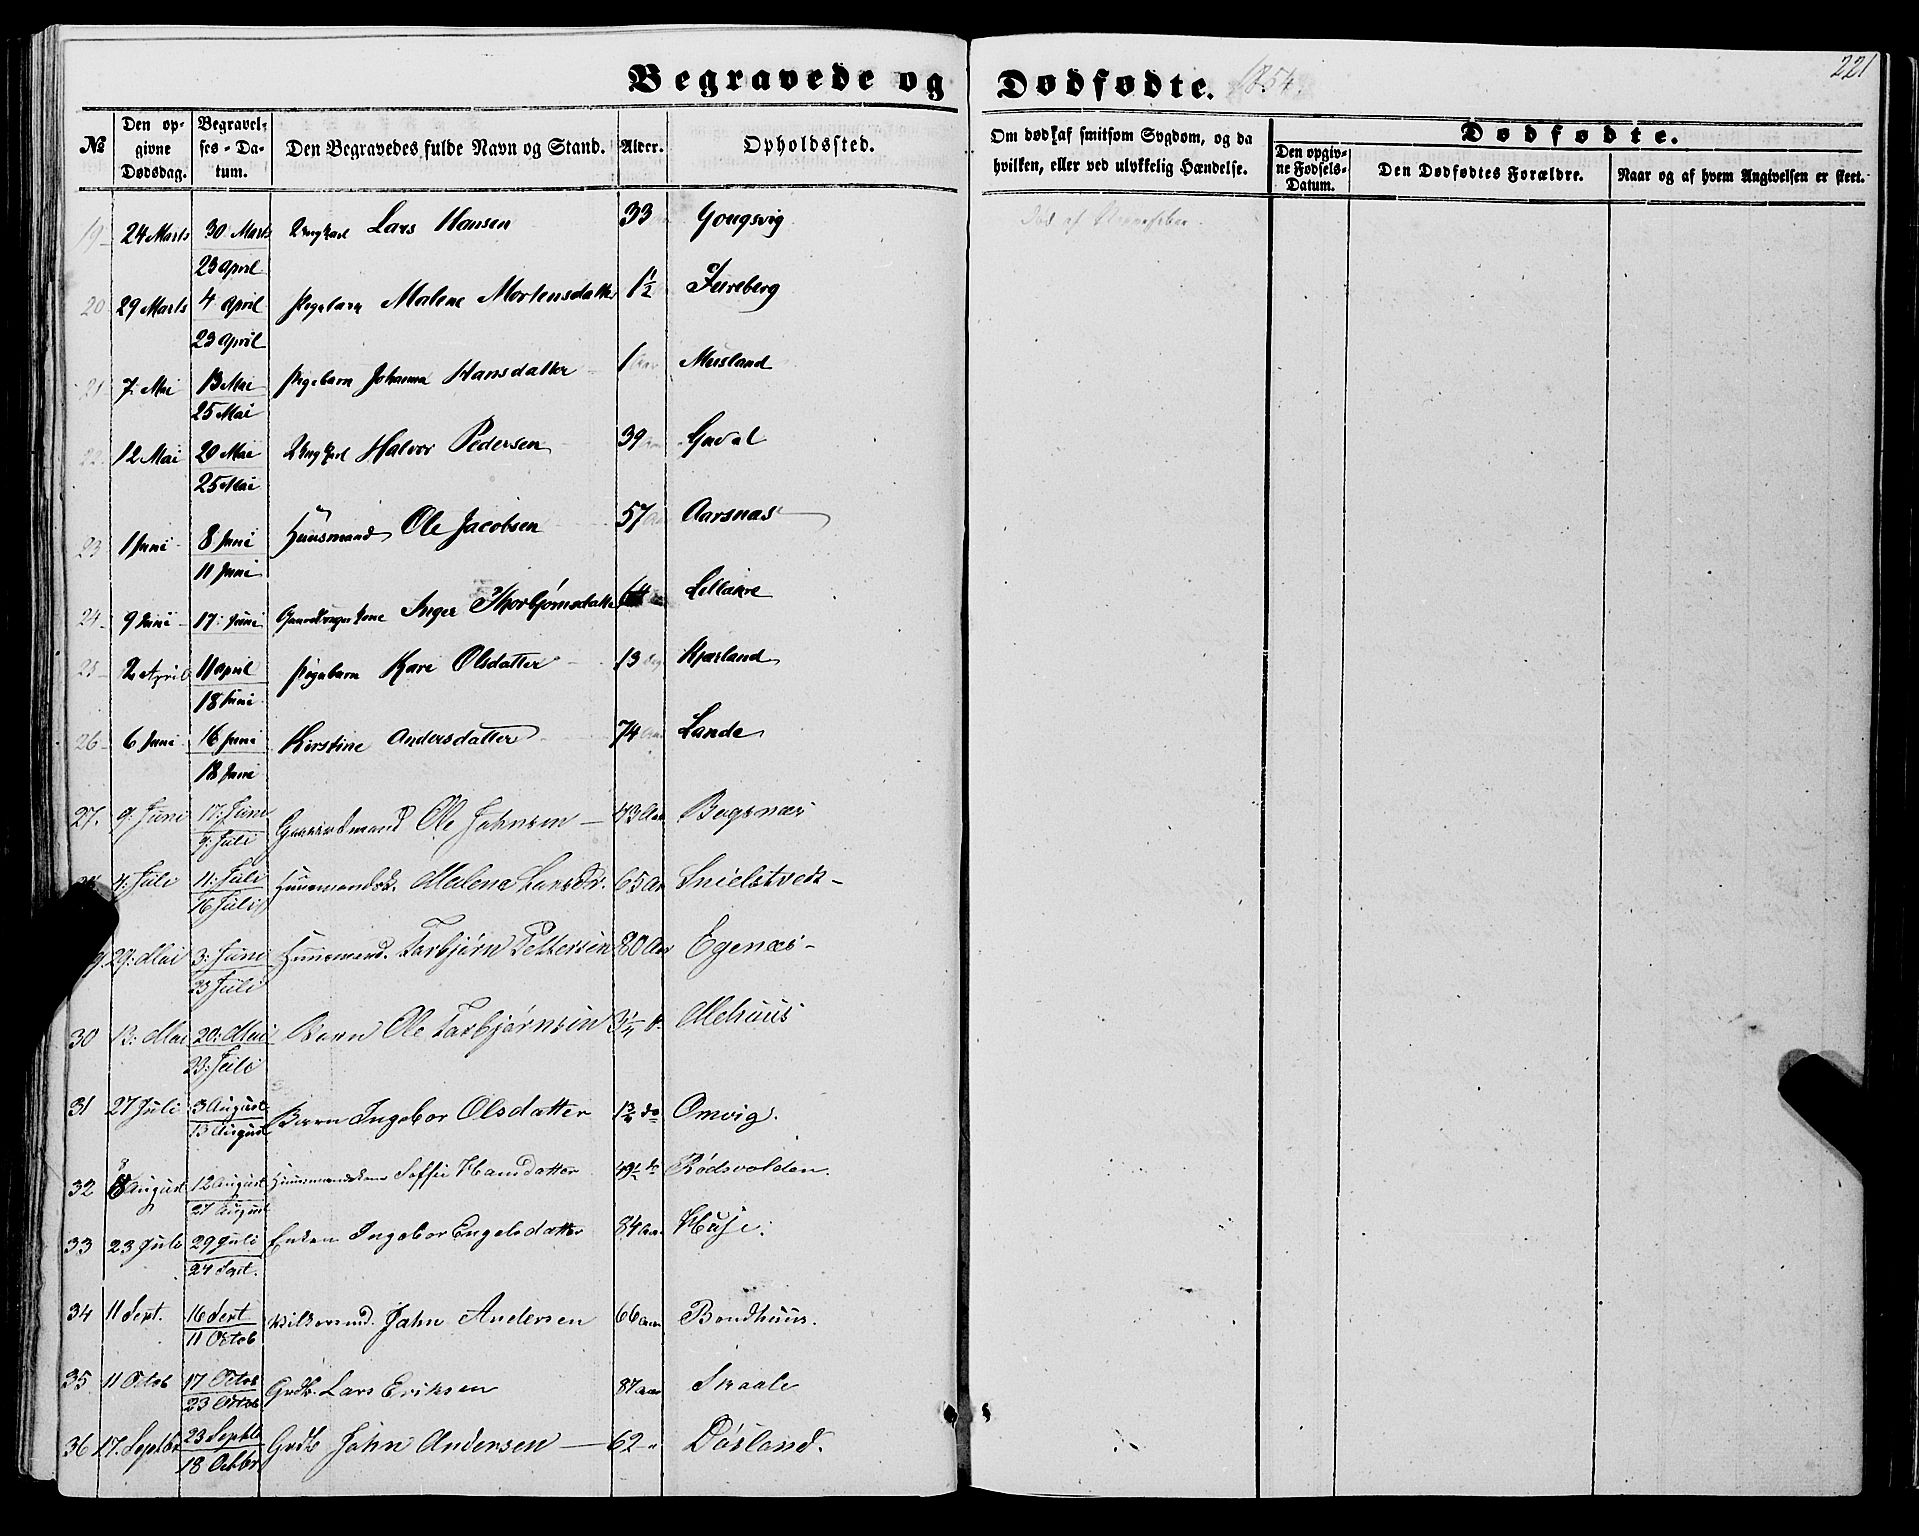 Begravede og Dødfødte. 1854.
221
№ | Den opgivne Dødsdag. | Begravelses-Datum. | Den Begravedes fulde Navn og Stand. | Alder. | Opholdssted. | Om død af smitsom Sygdom, og da hvilken, eller ved ulykkelig Hændelse. | Dødfødte.
Den opgivne Fødsels-Datum. | Den Dødfødtes Forældre. | Naar og af hvem Angivelsen er skeet.
19 | 24 Marts | 30 Marts 23 April | Ungkarl Lars Hansen | 33 | Gongsvig | Død af
20 | 29 Marts | 4 April 23 April | Pigebarn Malene Mortensdatter | 1½ | Fureberg
21 | 7 Mai | 13 Mai 25 Mai | Pigebarn Johanna Hansdatter | 1 Aar | Musland
22 | 12 Mai | 20 Mai 25 Mai | Ungkarl Halvor Pedersen | 39 | Gaval
23 | 1 Juni | 8 Juni 11 Juni | Huusmand Ole Jacobsen | 57 | Aarsnæs
24 | 9 Juni | 17 Juni | Inger Thorbjørnsdatter | 64 | Lillakre
25 | 2 April | 11 April 18 Juni | Pigebarn Kari Olsdatter | 13 | Kjærland
26 | 6 Juni | 16 Juni 18 Juni | Kirstine Andersdatter | 74 | Lande
27. | 9: Juni | 17: Juni 9: Juli | Gaardmand Ole Johnsen | 73 Aar | Bogsnæs
4: Juli | 11: Juli 16 Juli | Huusmandsk. Malene Larsdtr. | 65 Aar
29: Mai | 3: Juni 23 Juli | Huusmand. Torbjørn Pettersen | 80 Aar | Egenæs
30 | 13: Mai | 20: Mai 23: Juli | Barn Ole Torbjørnsen | 3¼ | Mehuus
31 | 27 Juli | 3 August 13 August | Barn Ingebor Olsdatter | 1¾ do | Omvig.
32 | 8 August | 12 August 27 August | Huusmandskone Soffie Hansdatter | 49½ do | Rødsvolden.
33 | 23 Juli | 29 Juli 24 Sept. | Enken Ingebor Engelsdatter | 84 aar | Huse.
34 | 11 Sept. | 16 Sept 11 Octob | John Andersen | 66 aar | Bondhuus.
35 | 11 Octob | 17 Octob 23 Octob | Grdb. Lars Eriksen | 87 aar | Skaale
36 | 17. Septbr | 23 Septb 18 Octbr | Grdb John Andersen | 62 " | Døsland.